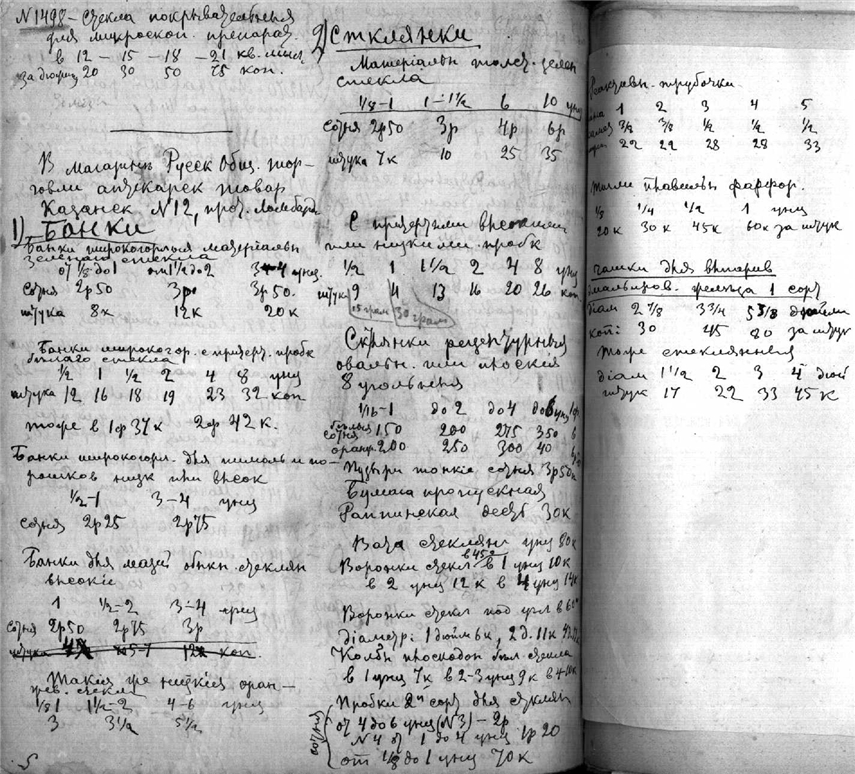 N 1498 – Стекла покрывательныя
для микроскоп. препарат.
в 12 – 15 – 18 – 21 кв. мил.
за дюжину 20 30 50 75 коп.
В магазинъ Русск Общ. тор-
говли аптекарск товар
Казанск N 12, прот. Ломбарда
1) Банки
Банки широкогорлыя матеріальн
зеленаго стекла
от 1/8 до 1 от 1 1/2 до 2 3–4 унц.
сотня 2р 50 3р 3р 50.
штука 8к 12к 20к
Банки широкогор. с притерт. пробк
бѣлаго стекла
1/2 1 1 1/2 2 4 8 унц
штука 12 16 18 19 23 32 коп
тоже в 1ф 37к 2ф 42 к.
Банки широкогорл. для пилюль и по-
рошков низк или высок
1/2–1 3–4 унц
сотня 2р 25 2р 75
Банки для мазей обыкн. стеклян
высокіе
1 1/2–2 3–4 унц
сотня 2р 50 2р 75 3р
штука 12к коп.
Такія же низкія оран-
жев. стекла
1/8 1 1 1/2–2 4–6 унц
3 3 1/2 5 1/2
2) Стклянки
Матеріальн толст. зелен
стекла
1/8–1 1–1 1/2 6 10 унц
сотня 2р 50 3р 4р 6р
штука 7к 10 25 35
С притертыми высокими
или низкими пробк
1/2 1 1 1/2 2 4 8 унц
штука 9 11 13 16 20 26 коп
15 грам 30 грам
Склянки рецептурныя
овальн. или плоскія
8 угольныя
1/16–1 до 2 до 4 до 6 унц
бѣлыя сотня 150 200 275 350
оранж. 200 250 300 40
Пузыри тонкіе сотня 3р 50к
Бумага пропускная
Раппинская десть 30к
Ваза стеклян унц 80к
Воронки стекл в 1 унц 10к
в 2 унц 12к в 4 унц 14к
Воронки стекл под угл в 60°
діаметр: 1 дюйм 6к, 2д. 11к
Колбы плоскодон бѣл стекла
в 1 унц 7к в 2–3 унц 9к в 4 10к
Пробки 2й сорт для стклян
сотня
от 4 до 6 унц (N3) – 2р
N 4 от 1 до 4 унц 1р 20
от 1/2 до 1 унц 70к
трубочки
1 2 3 4 5
3/8 3/8 1/2 1/2 1/2
22 22 28 28 33
фарфор.
1/8 1/4 1/2 1 унц
20к 30к 45к 60к за штук
чашки для выпарив
эмальиров. желѣза 1 сорт
діам 2 7/8 3 3/4 5 3/8 дюйм
коп: 30 45 80 за штук
тоже стеклянныя
діам 1 1/2 2 3 4 дюй
штук 17 22 33 45 к
5